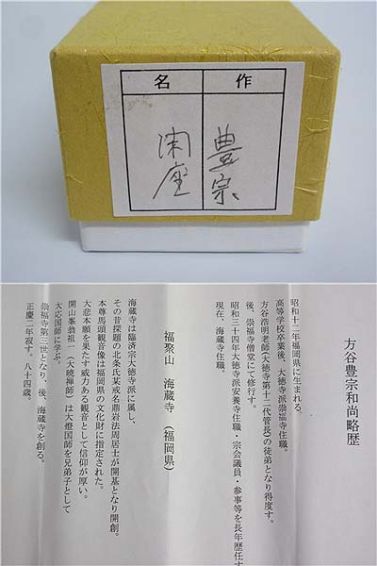 作
名
豊宗
閑座
方谷豊宗和尚略歴
昭和十二年福岡県に生まれる。
高等学校卒業後、大徳寺派崇福寺住職、
方谷浩明老師(大徳寺第十二代管長)の徒弟となり得度す。
後、崇福寺僧堂にて修行す。
昭和三十四年大徳寺派安養寺住職・宗会議員・参事等を長年歴任す
現在、海蔵寺住職。
福聚山 海蔵寺 (福岡県)
海蔵寺は臨済宗大徳寺派に属し、
その昔探題の北条氏某戒名鼎岩法周居士が開基となり開創。
本尊馬頭観音像は福岡県の文化財に指定された。
大悲本願を果たす威力ある観音として信仰が厚い。
開山峯翁祖一(大暁禅師)は大燈国師を兄弟子として
大応国師に学ぶ。
崇福寺第三世となり、後、海蔵寺を創る。
正慶二年寂す。八十四歳。